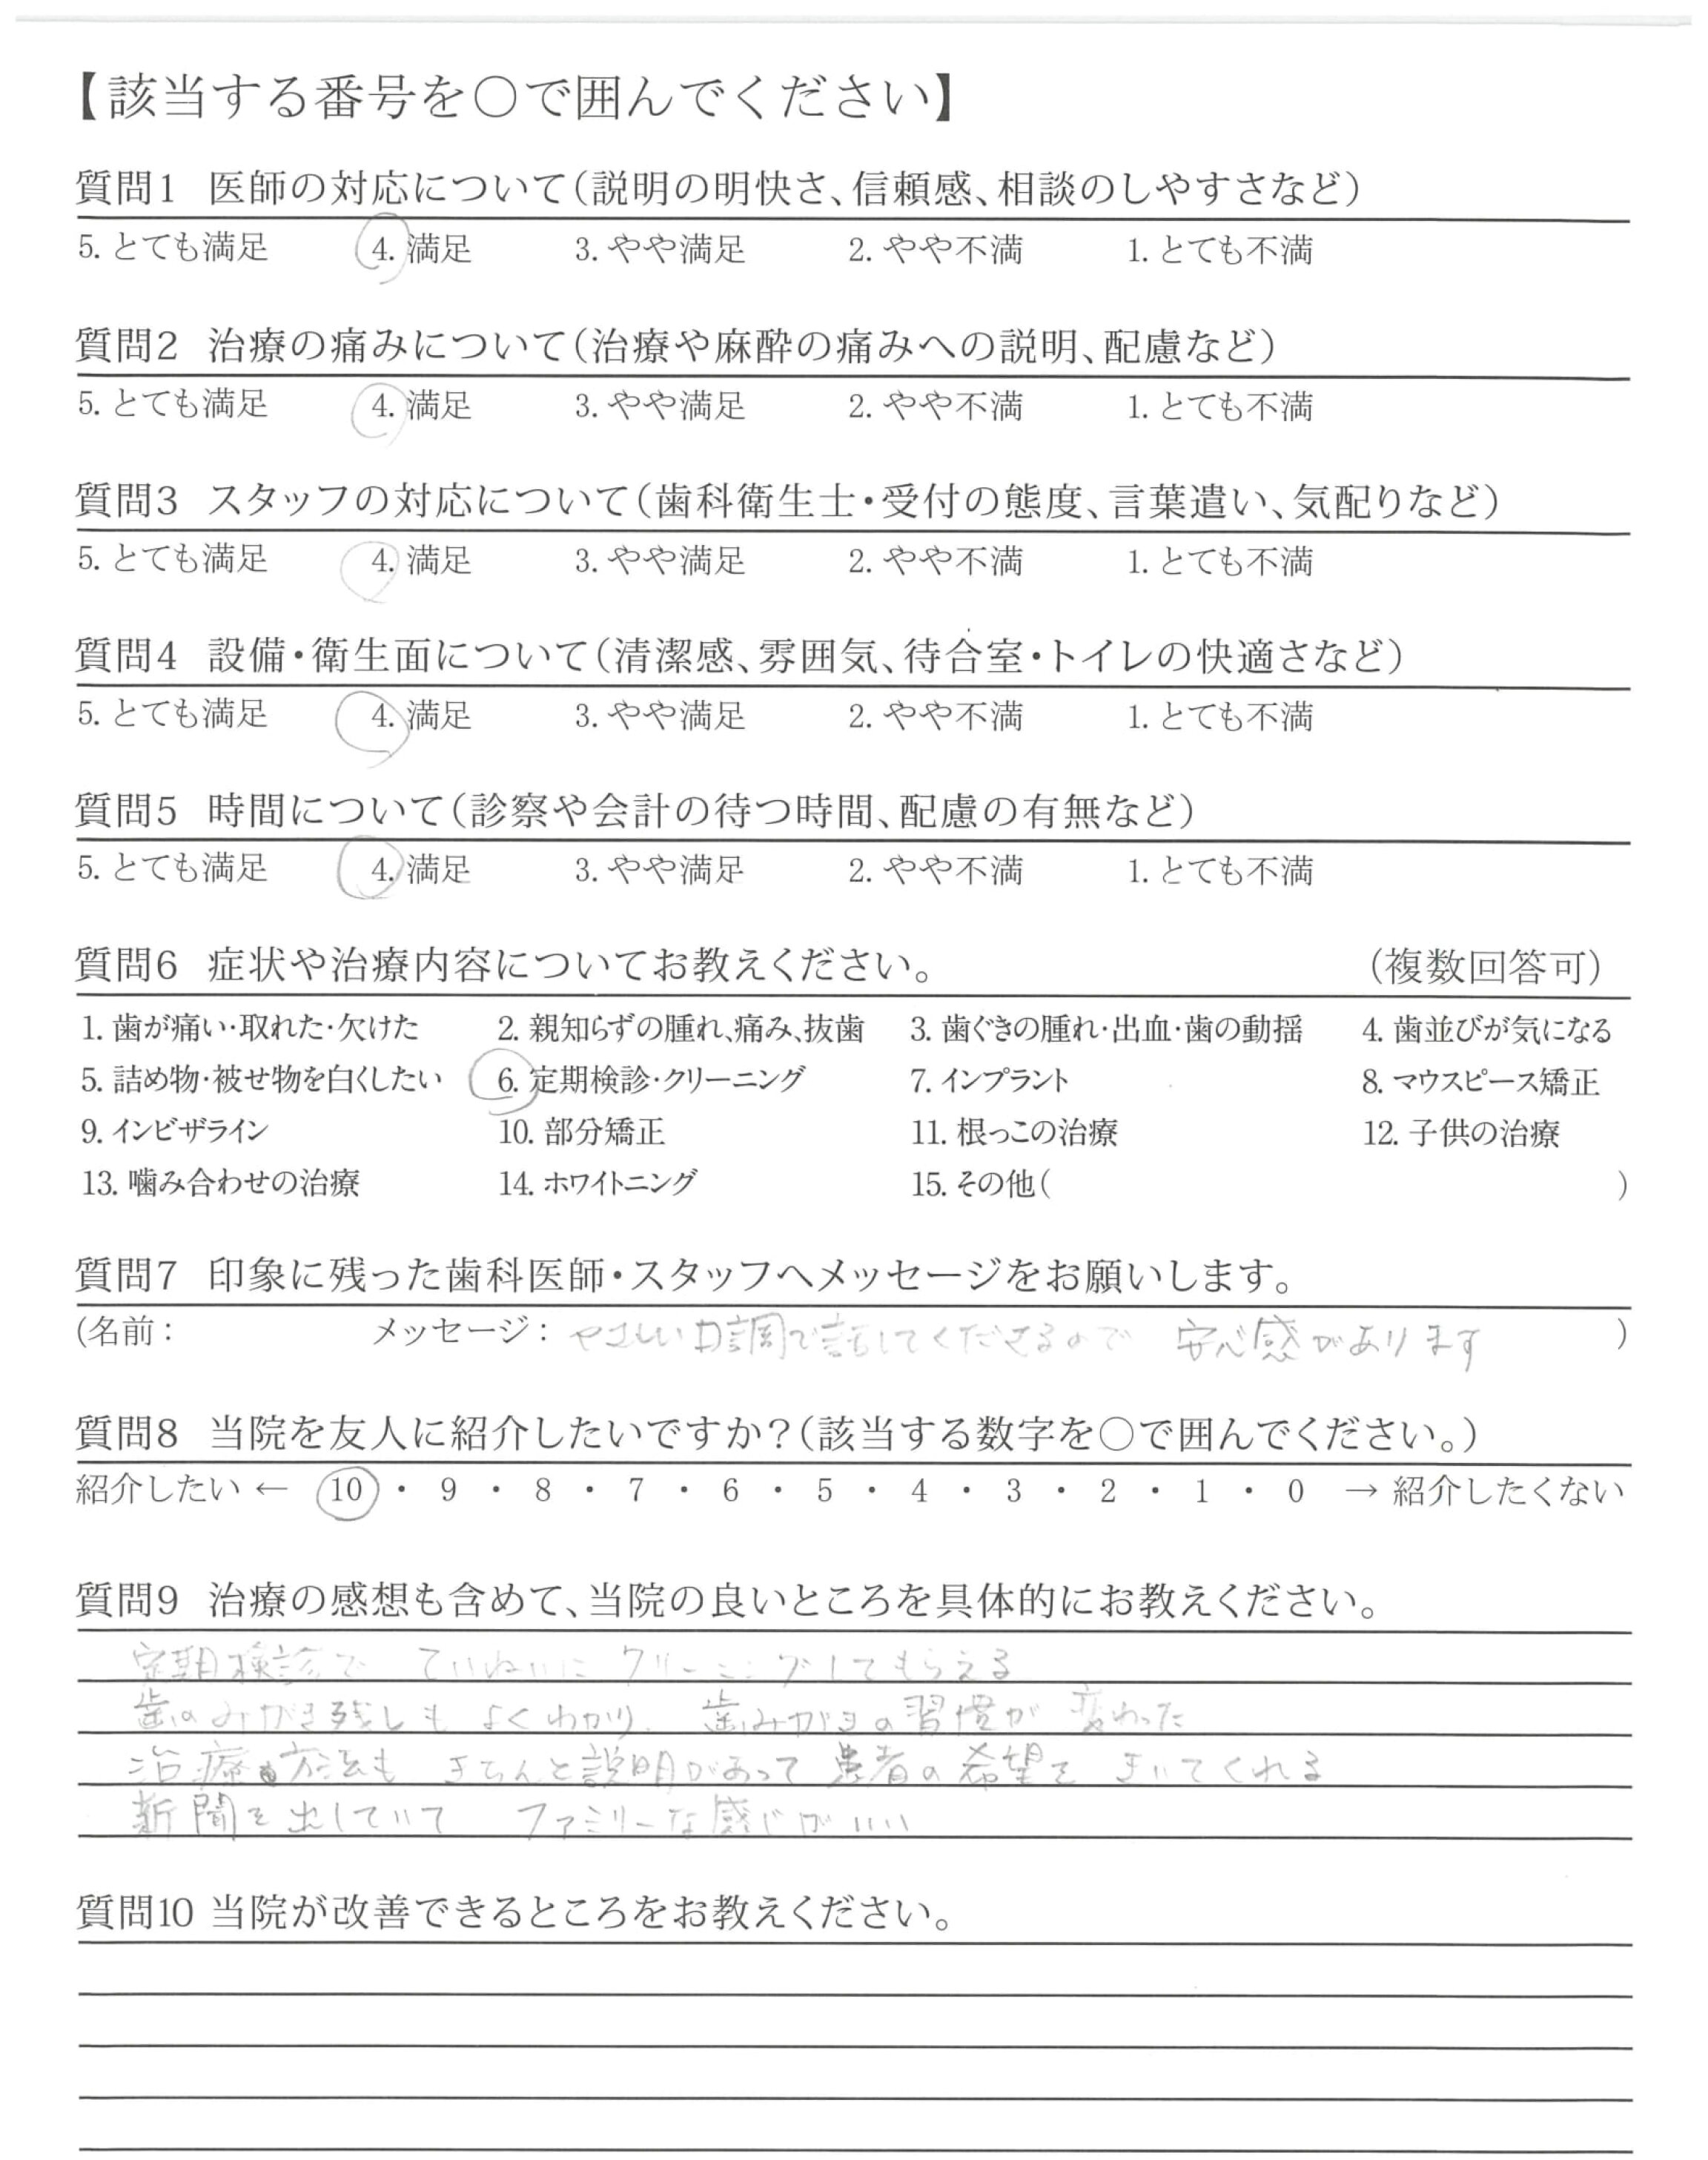 【該当する番号を○で囲んでください】
質問1 医師の対応について(説明の明快さ、信頼感、相談のしやすさなど)
5. とても満足 4. 満足 3. やや満足 2. やや不満 1. とても不満
質問2 治療の痛みについて(治療や麻酔の痛みへの説明、配慮など)
5. とても満足 4. 満足 3. やや満足 2. やや不満 1. とても不満
質問3 スタッフの対応について(歯科衛生士・受付の態度、言葉遣い、気配りなど)
5. とても満足 4. 満足 3. やや満足 2. やや不満 1. とても不満
質問4 設備・衛生面について(清潔感、雰囲気、待合室・トイレの快適さなど)
5. とても満足 4. 満足 3. やや満足 2. やや不満 1. とても不満
質問5 時間について(診察や会計の待つ時間、配慮の有無など)
5. とても満足 4. 満足 3. やや満足 2. やや不満 1. とても不満
質問6 症状や治療内容についてお教えください。 (複数回答可)
1. 歯が痛い・取れた・欠けた 2. 親知らずの腫れ、痛み、抜歯 3. 歯ぐきの腫れ・出血・歯の動揺 4. 歯並びが気になる
5. 詰め物・被せ物を白くしたい 6. 定期検診・クリーニング 7. インプラント 8. マウスピース矯正
9. インビザライン 10. 部分矯正 11. 根っこの治療 12. 子供の治療
13. 噛み合わせの治療 14. ホワイトニング 15. その他( )
質問7 印象に残った歯科医師・スタッフへメッセージをお願いします。
(名前: メッセージ: やさしい口調で話してくださるので 安心感があります )
質問8 当院を友人に紹介したいですか?(該当する数字を○で囲んでください。)
紹介したい ← 10 ・ 9 ・ 8 ・ 7 ・ 6 ・ 5 ・ 4 ・ 3 ・ 2 ・ 1 ・ 0 → 紹介したくない
質問9 治療の感想も含めて、当院の良いところを具体的にお教えください。
定期検診で ていねいに クリーニングしてもらえる
歯のみがき残しも よくわかり、歯みがきの習慣が 変わった
治療方法も きちんと説明があって 患者の希望を きいてくれる
新聞を出していて ファミリーな感じがいい
質問10 当院が改善できるところをお教えください。